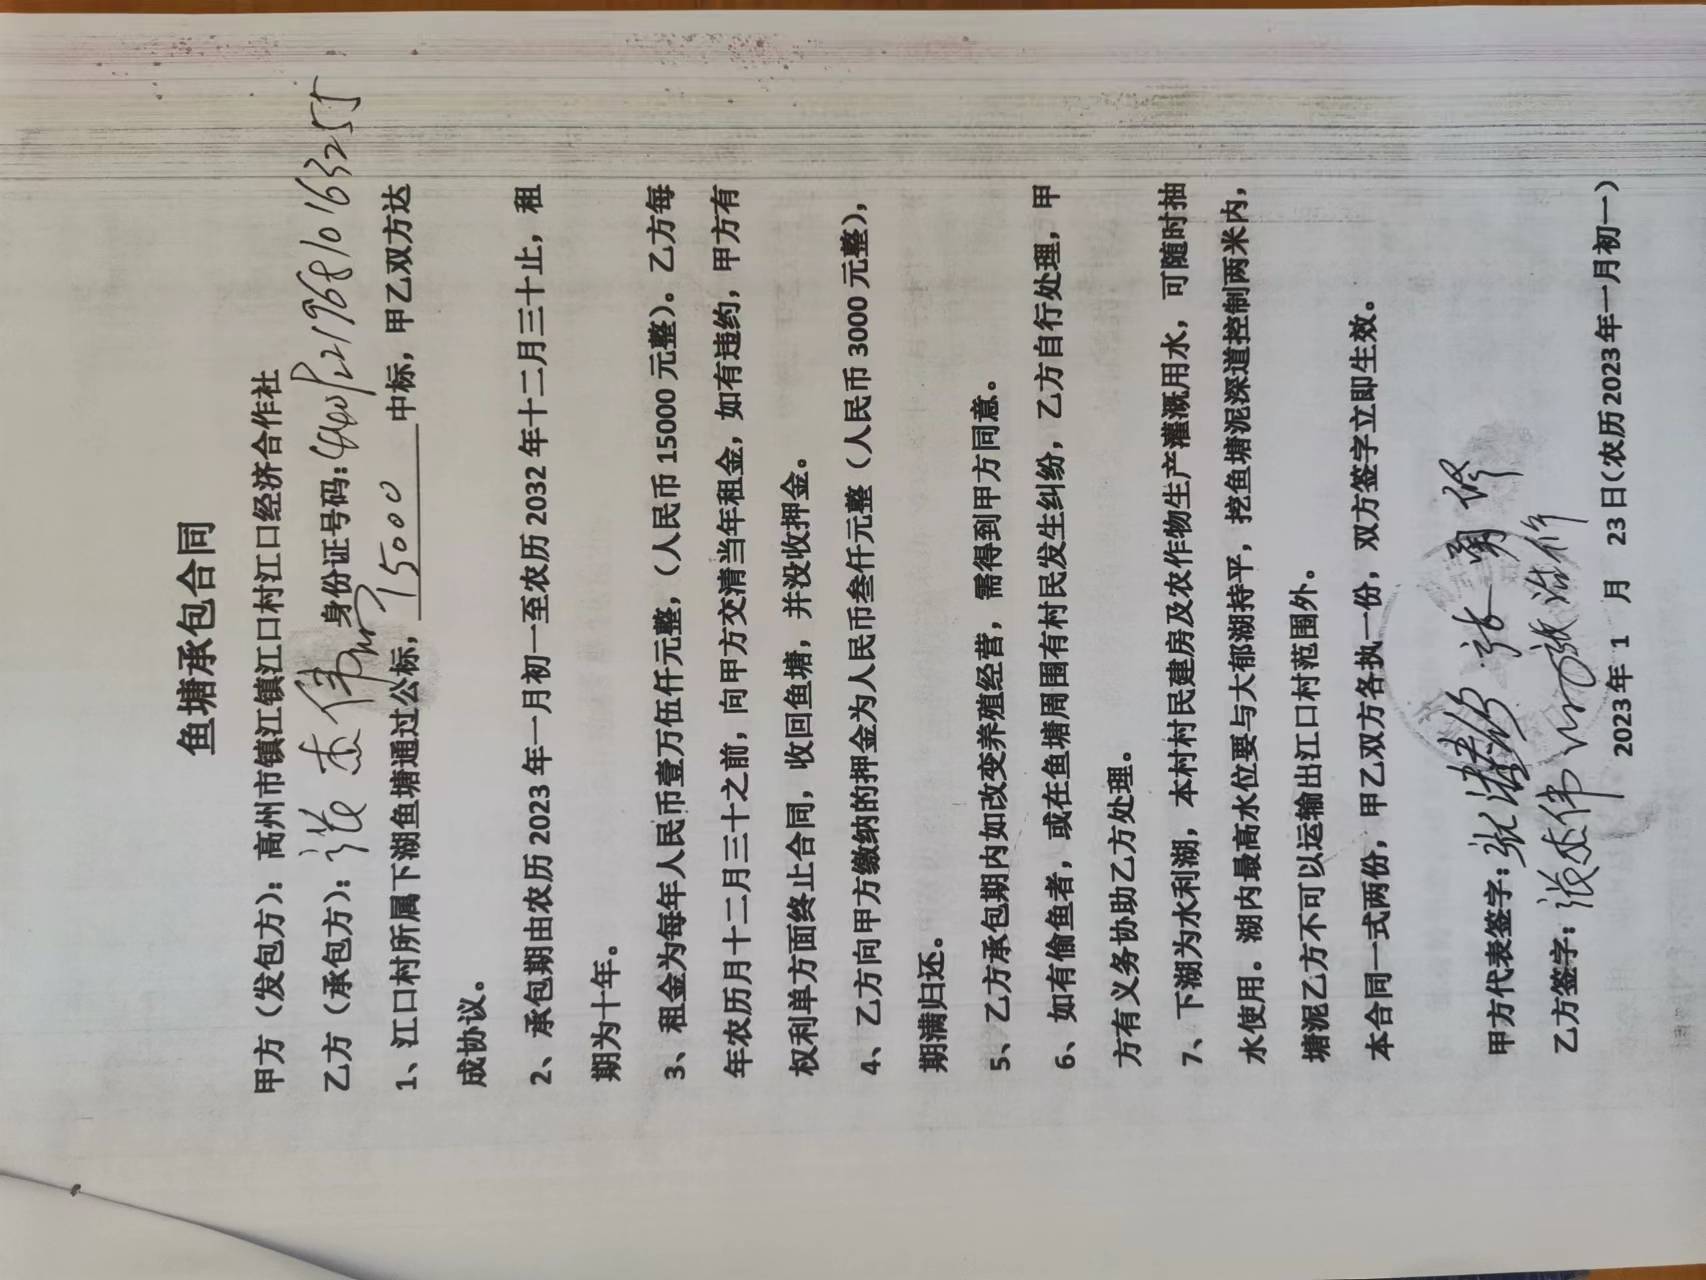 鱼塘承包合同
甲方（发包方）：高州市镇江镇江口村江口经济合作社
乙方（承包方）：张杰伟 身份证号码：
1、江口村所属下湖鱼塘通过公标，15000中标，甲乙双方达
成协议。
2、承包期由农历2023年一月初一至农历2032年十二月三十止，租
期为十年。
3、租金为每年人民币壹万伍仟元整，（人民币15000元整）。乙方每
年农历月十二月三十之前，向甲方交清当年租金，如有违约，甲方有
权利单方面终止合同，收回鱼塘，并没收押金。
4、乙方向甲方缴纳的押金为人民币叁仟元整（人民币3000元整），
期满归还。
5、乙方承包期内如改变养殖经营，需得到甲方同意。
6、如有偷鱼者，或在鱼塘周围有村民发生纠纷，乙方自行处理，甲
方有义务协助乙方处理。
7、下湖为水利湖，本村村民建房及农作物生产灌溉用水，可随时抽
水使用。湖内最高水位要与大郁湖持平，挖鱼塘泥深道控制两米内，
塘泥乙方不可以运输出江口村范围外。
本合同一式两份，甲乙双方各执一份，双方签字立即生效。
甲方代表签字：
乙方签字：张杰伟
2023年 1 月 23日（农历2023年一月初一）